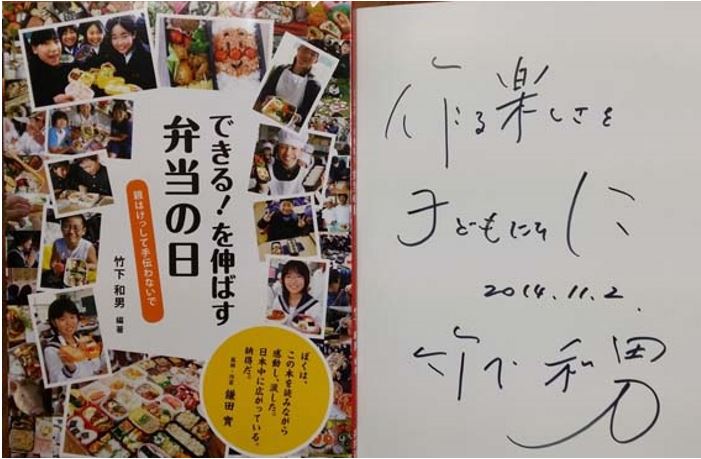 できる！を伸ばす
弁当の日
親はけっして手伝わないで
竹下 和男 編著
ぼくは、
この本を読みながら
感動し、涙した。
日本中に広がっている。
納得だ。
医師・作家 鎌田 實
作る楽しさを
子どもたちに
2014.11.2.
竹下和男